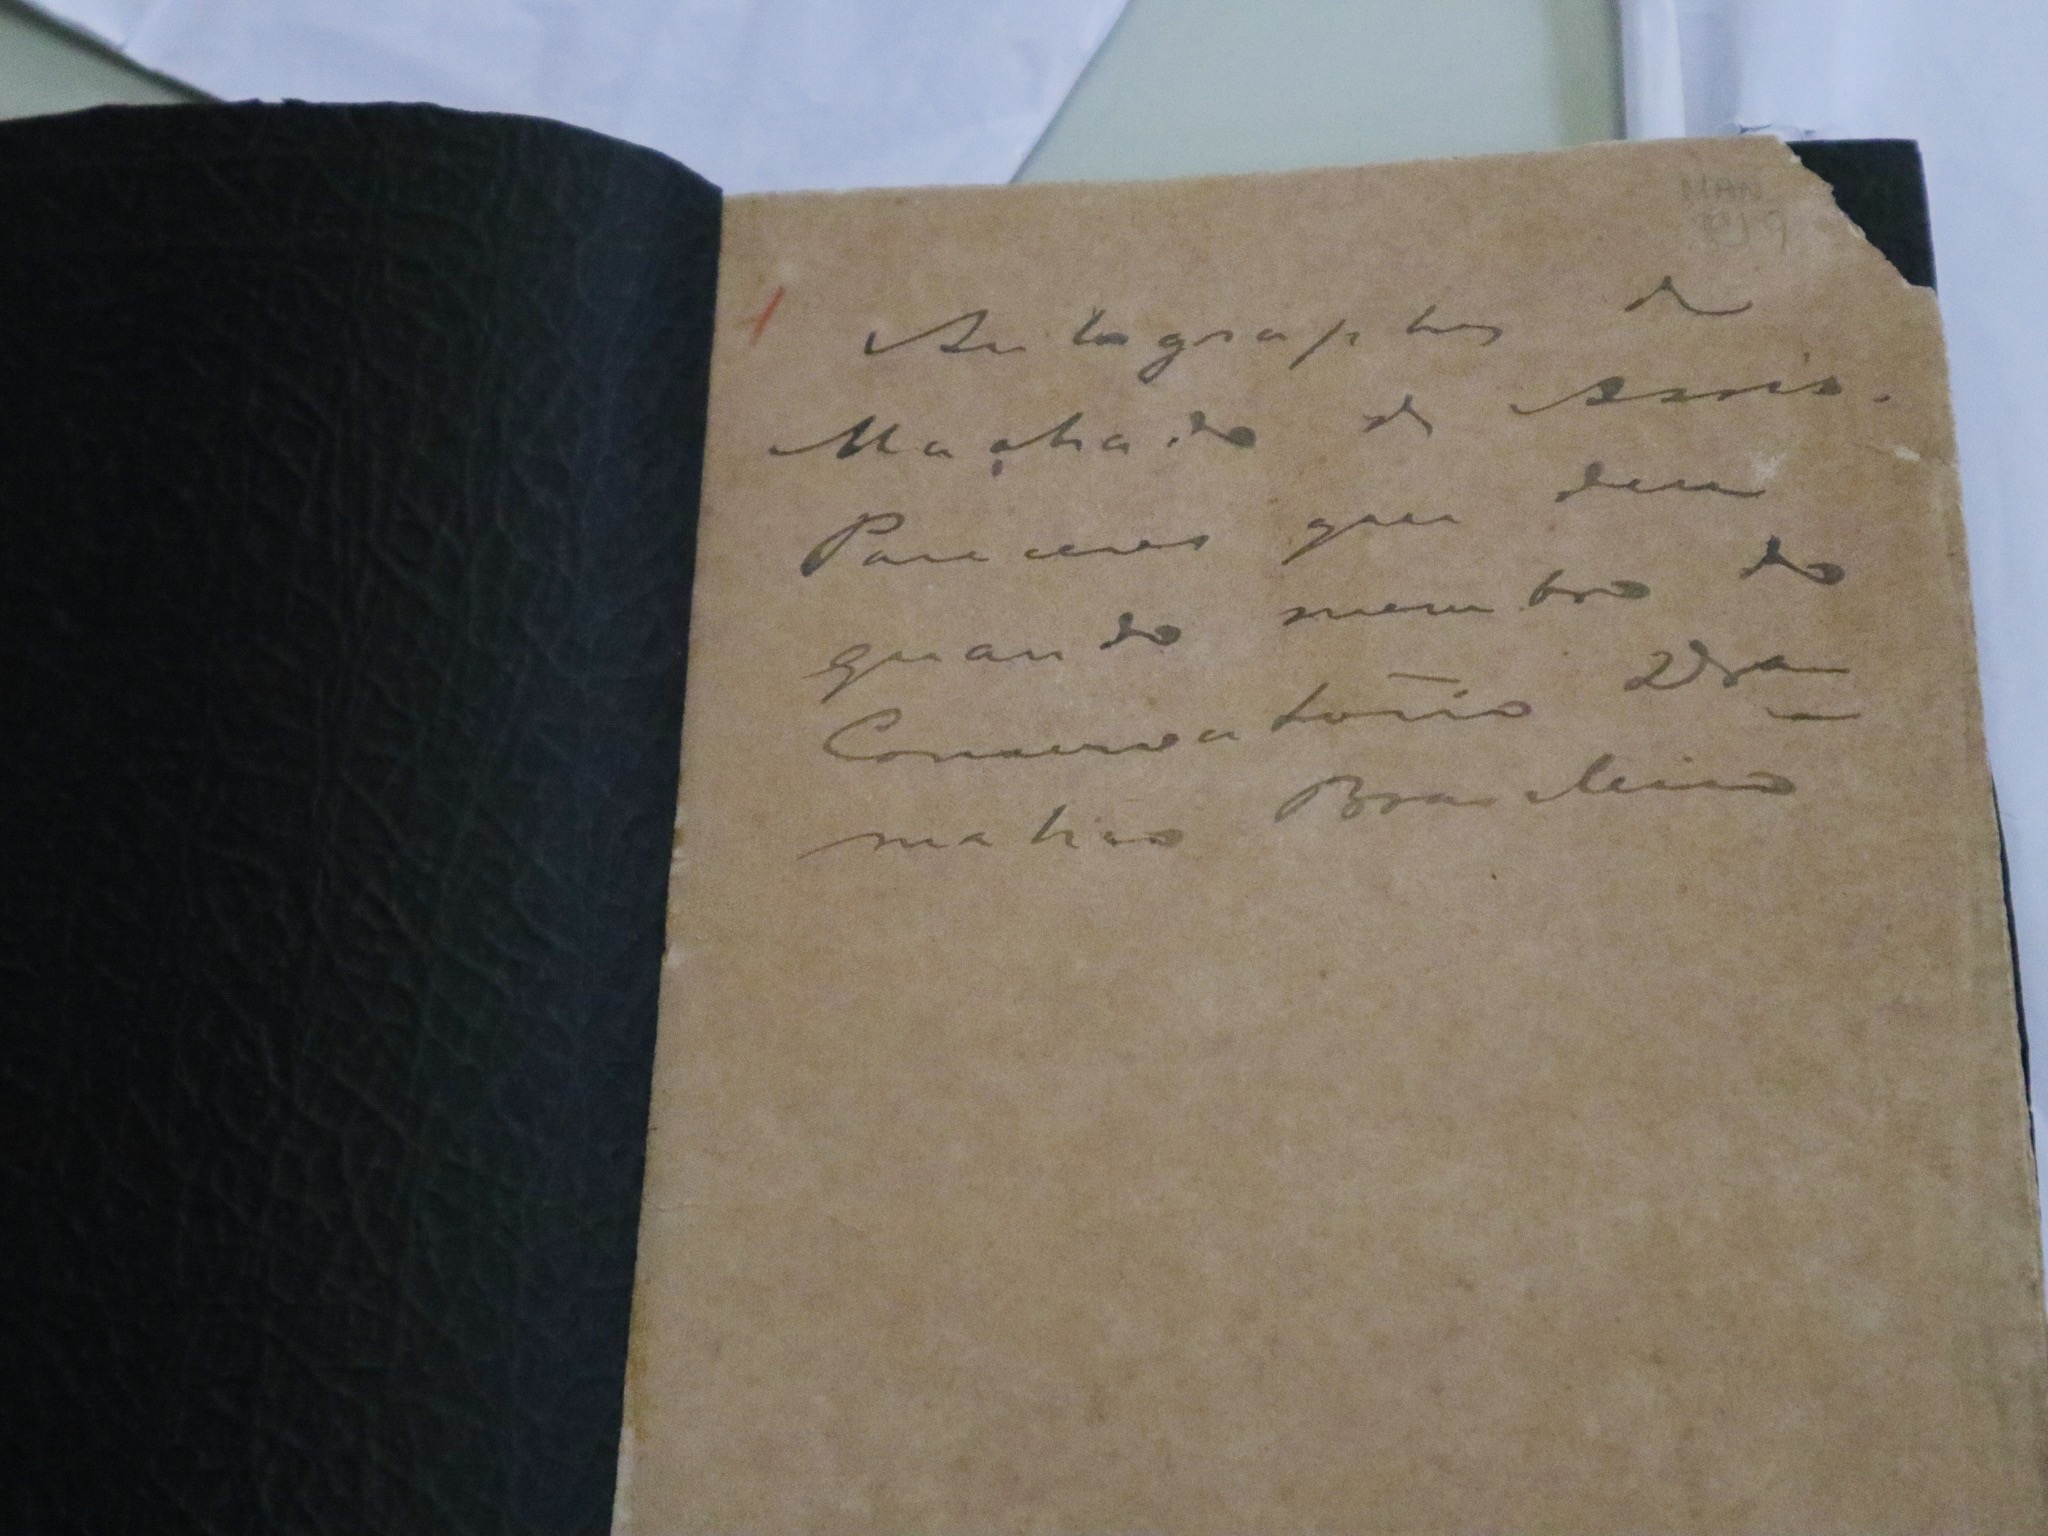 1
Autographos de
Machado de Assis.
Pareceres que deu
quando membro do
Conservatorio Dra-
matico Brasileiro